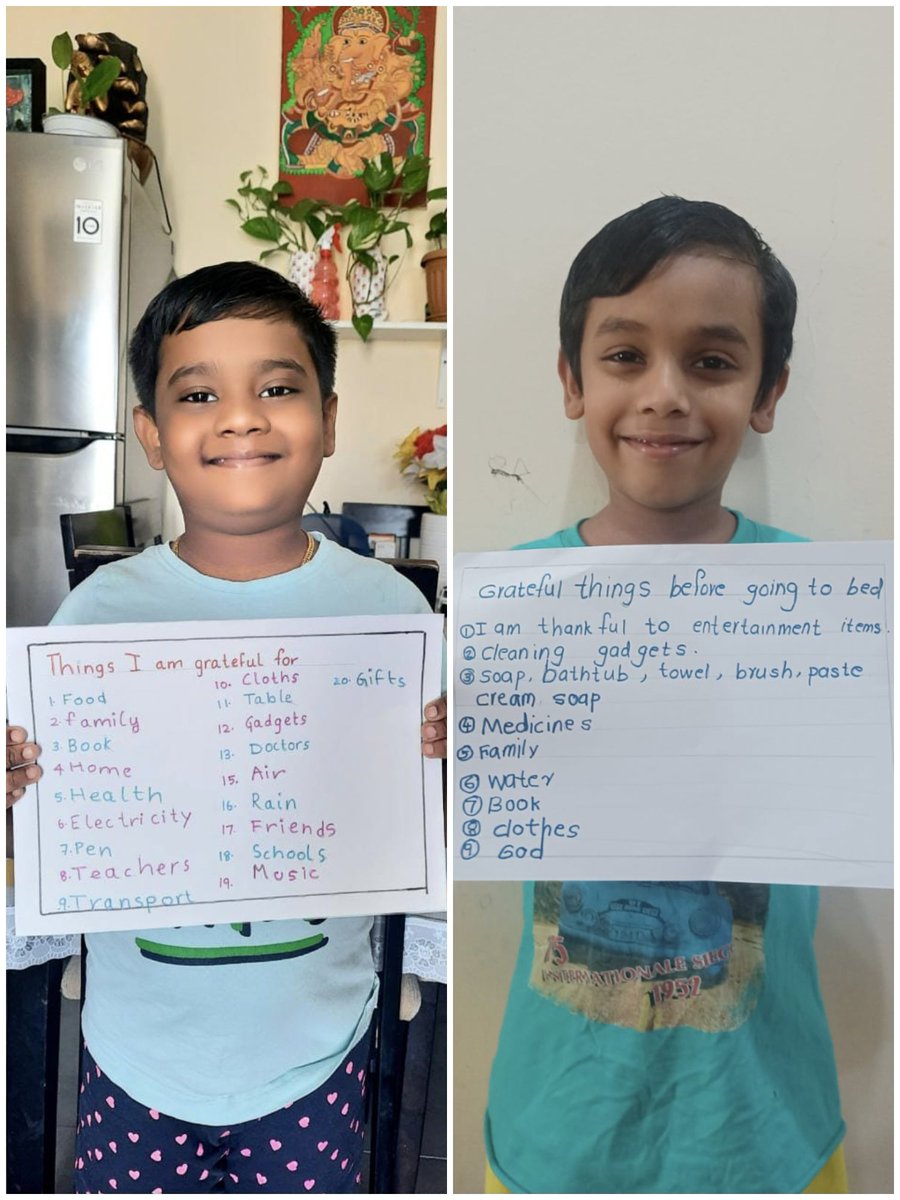 LG
INVERTER
10
Things I am grateful for
1. Food
2. family
3. Book
4. Home
5. Health
6. Electricity
7. Pen
8. Teachers
9. Transport
10. Cloths
11. Table
12. Gadgets
13. Doctors
15. Air
16. Rain
17. Friends
18. Schools
19. Music
20. Gifts
Grateful things before going to bed
① I am thankful to entertainment items.
② Cleaning gadgets.
③ Soap, bathtub, towel, brush, paste
cream soap
④ Medicines
⑤ Family
⑥ Water
⑦ Book
⑧ clothes
⑨ God
75
INTERNATIONALE
1952